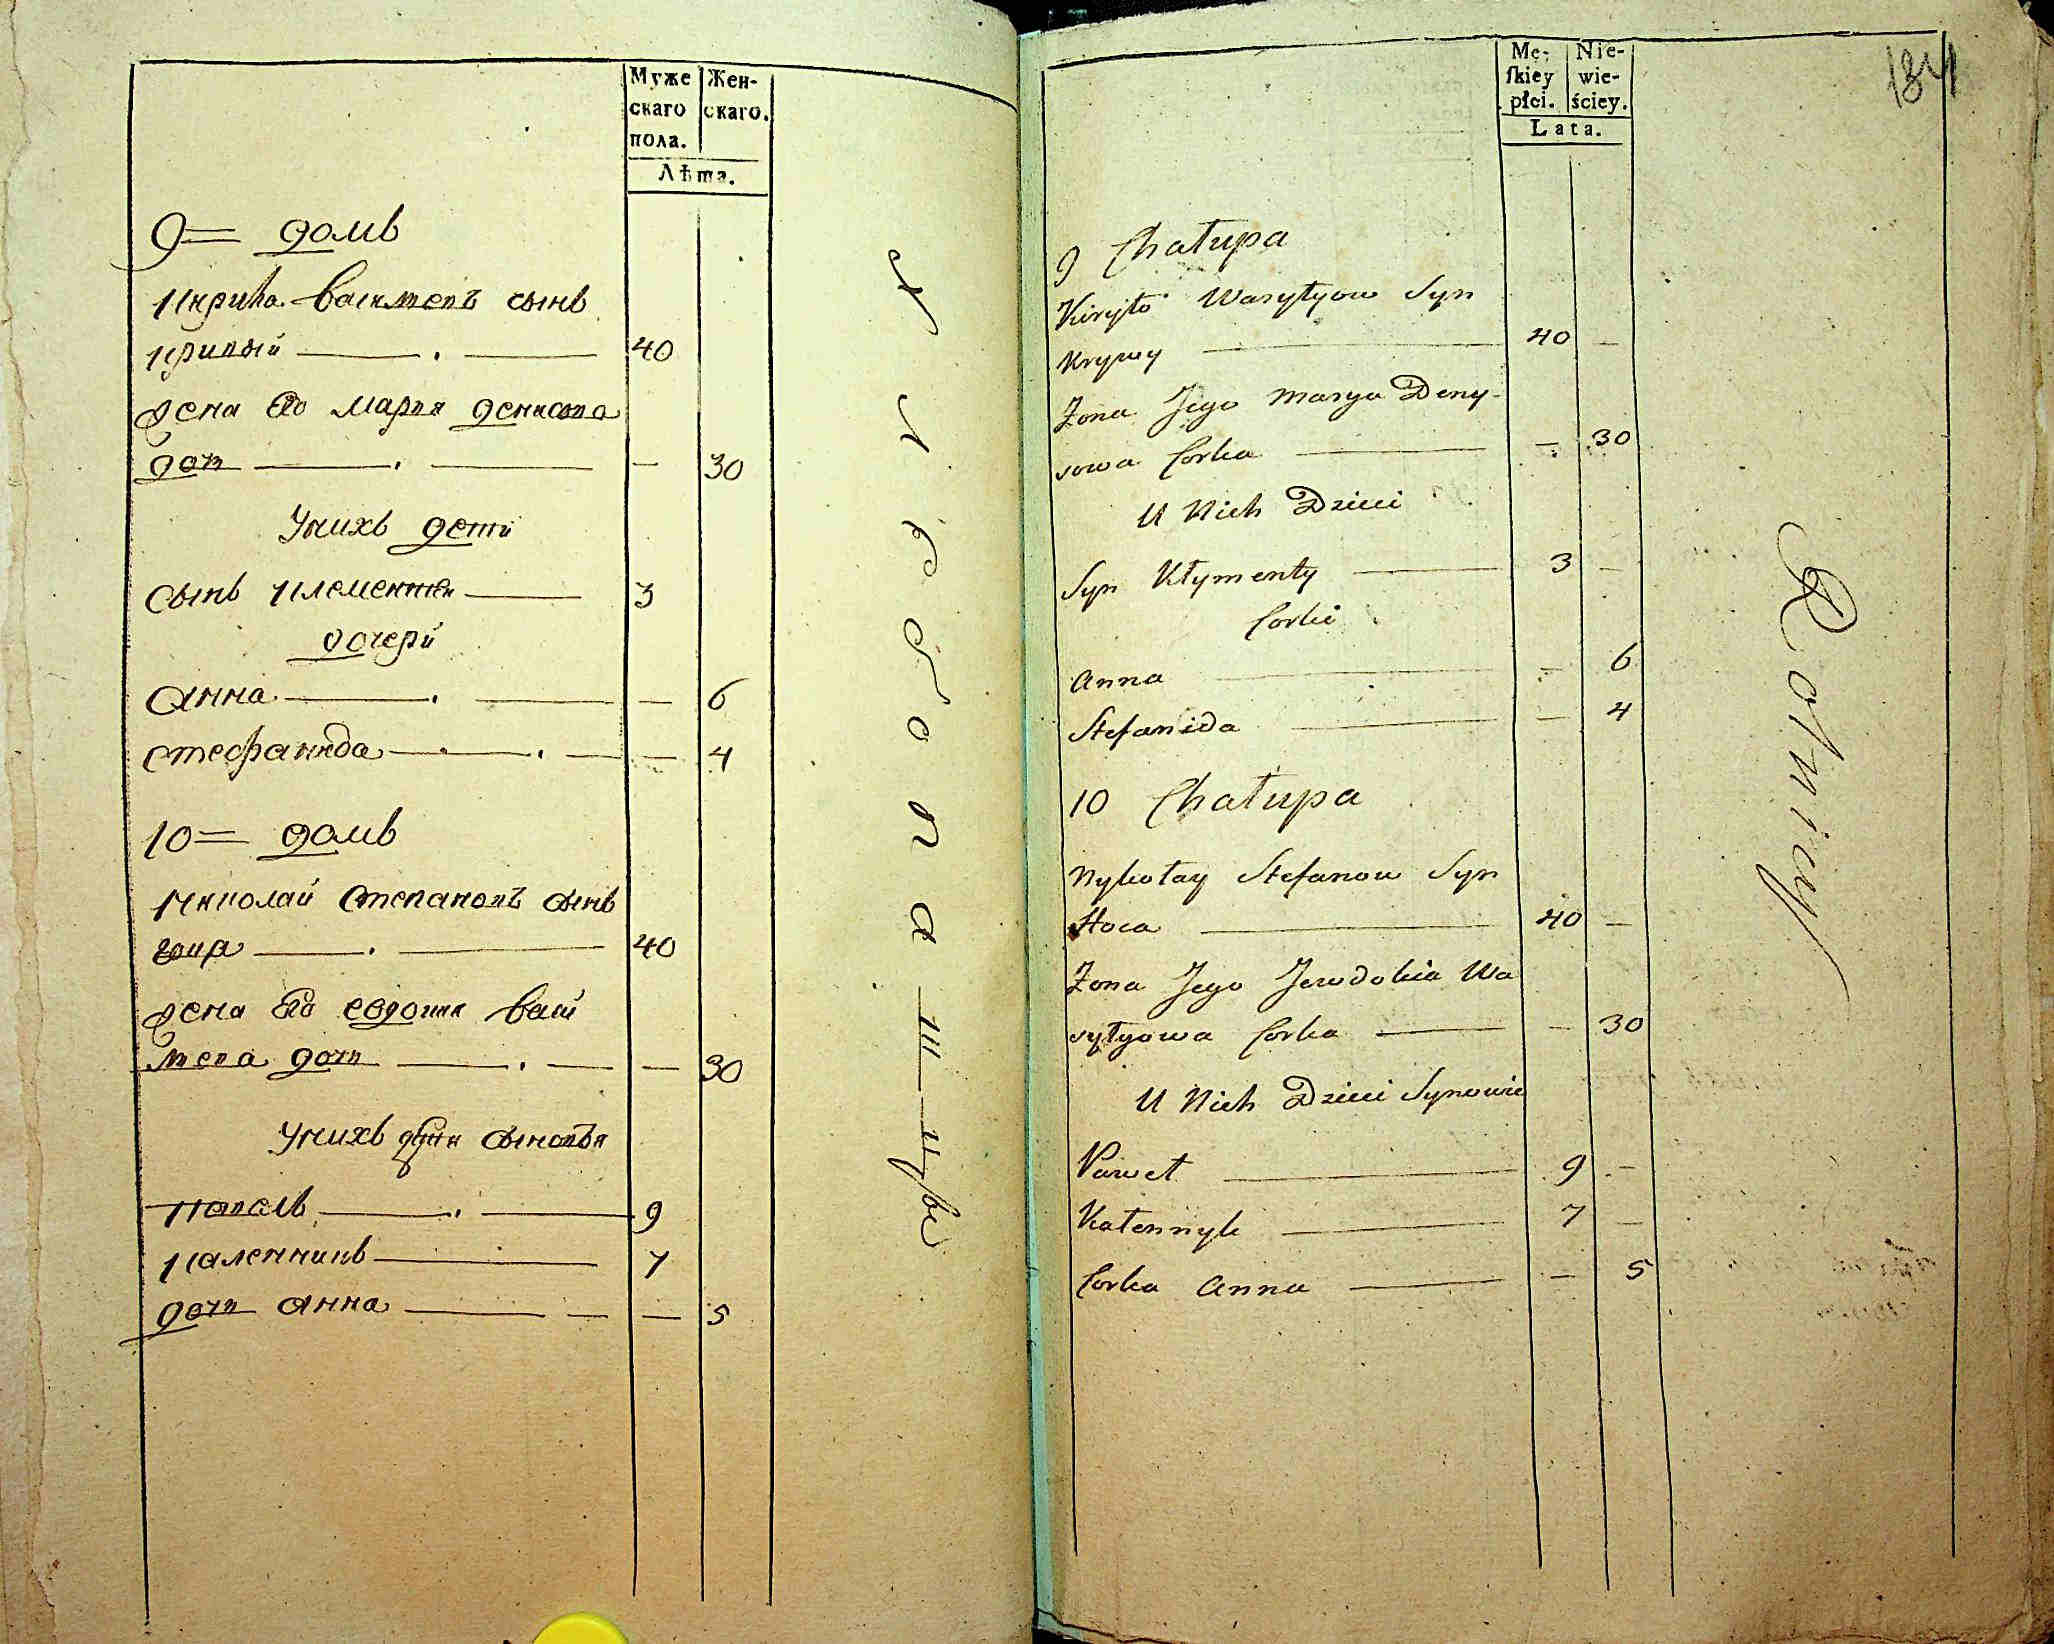 Муже
скаго
пола.
Жен-
скаго.
Лѣта.
9 домъ
Кирила Васильевъ сынъ
Кривый 40
жена его Марья Денисова
дочь — 30
У нихъ дети
сынъ Клементїй 3
дочери
Анна — 6
Стефанида — 4
10 домъ
Николай Степановъ сынъ
40
жена его Евдокия Васи
льева дочь — 30
У нихъ дети сыновья
Павелъ 9
Каленникъ 7
дочь Анна — 5
Хлебопашцы
134
Mę-
ſkiey
płci.
Nie-
wie-
ściey.
Lata.
9 Chałupa
Kiryło Wasylyow Syn
Krywy 40 —
Żona Jego Marya Deny-
sowa Corka — 30
U Nich Dzieci
Syn Kłymenty 3 —
Corki
Anna — 6
Stefanida — 4
10 Chałupa
Mykołay Stefanow Syn
40 —
Żona Jego Jewdokia Wa
sylyowa Corka — 30
U Nich Dzieci Synowie
Paweł 9 —
Kałennyk 7 —
Corka Anna — 5
Rolnicy